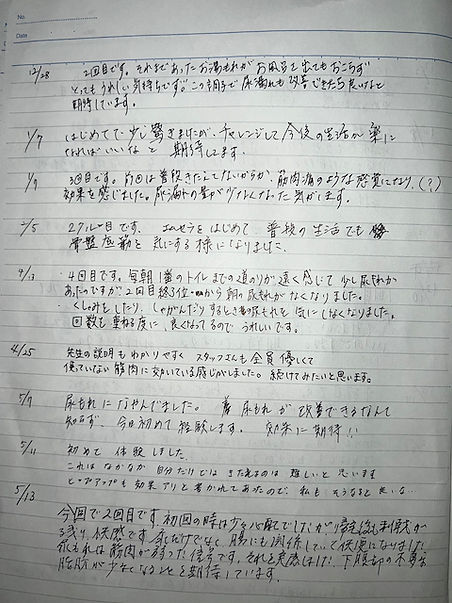 No.
Date
12/28 2回目です。それまであったお湯もれがお風呂を出てもおこらず
とってもうれしい気持ちです。この調子で尿漏れも改善できたら良いなと
期待しています。
1/7 はじめてで少し驚きましたが、チャレンジして今後の生活が楽に
なればいいなと 期待してます。
1/9 3回目です。前回は普段きたえてないからか、筋肉痛のような感覚になり、(?)
効果を感じました。尿漏れの量が少なくなった気がします。
2/5 2クール目です。 エムセラをはじめて 普段の生活でも
骨盤底筋を気にする様になりました。
4/13 4回目です。毎朝1番のトイレまでの道のりが遠く感じて少し尿もれが
あったのですが、2回目終了位から朝の尿もれがなくなりました。
くしゃみをしたり、しゃがんだりするときの尿もれを気にしなくなりました。
回数を重ねる度に、良くなってるので うれしいです。
4/25 先生の説明もわかりやすく スタッフさんも全員優しくて
使っていない筋肉に効いている感じがしました。続けてみたいと思います。
5/7 尿もれになやんでました。 尿もれが改善できるなんて
知らず、今日初めて経験します。 効果に期待!!
5/11 初めて 体験しました
これは なかなか 自分だけでは きたえるのは 難しいと思います
ヒップアップも効果アリと書かれてあったので、私も そうなると良いな…
5/13 今回で2回目です。初回の時は少々心配でしたが
残り、快感です。尿だけでなく腸にも関係していて快便になりました
尿もれは筋肉が弱った信号です。それを実感しました。下腹部の不要な
脂肪が少なくなることを期待しています。